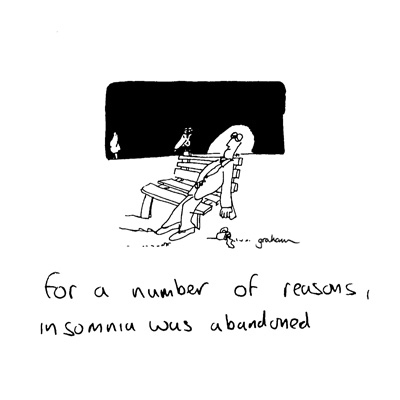 graham
for a number of reasons,
insomnia was abandoned